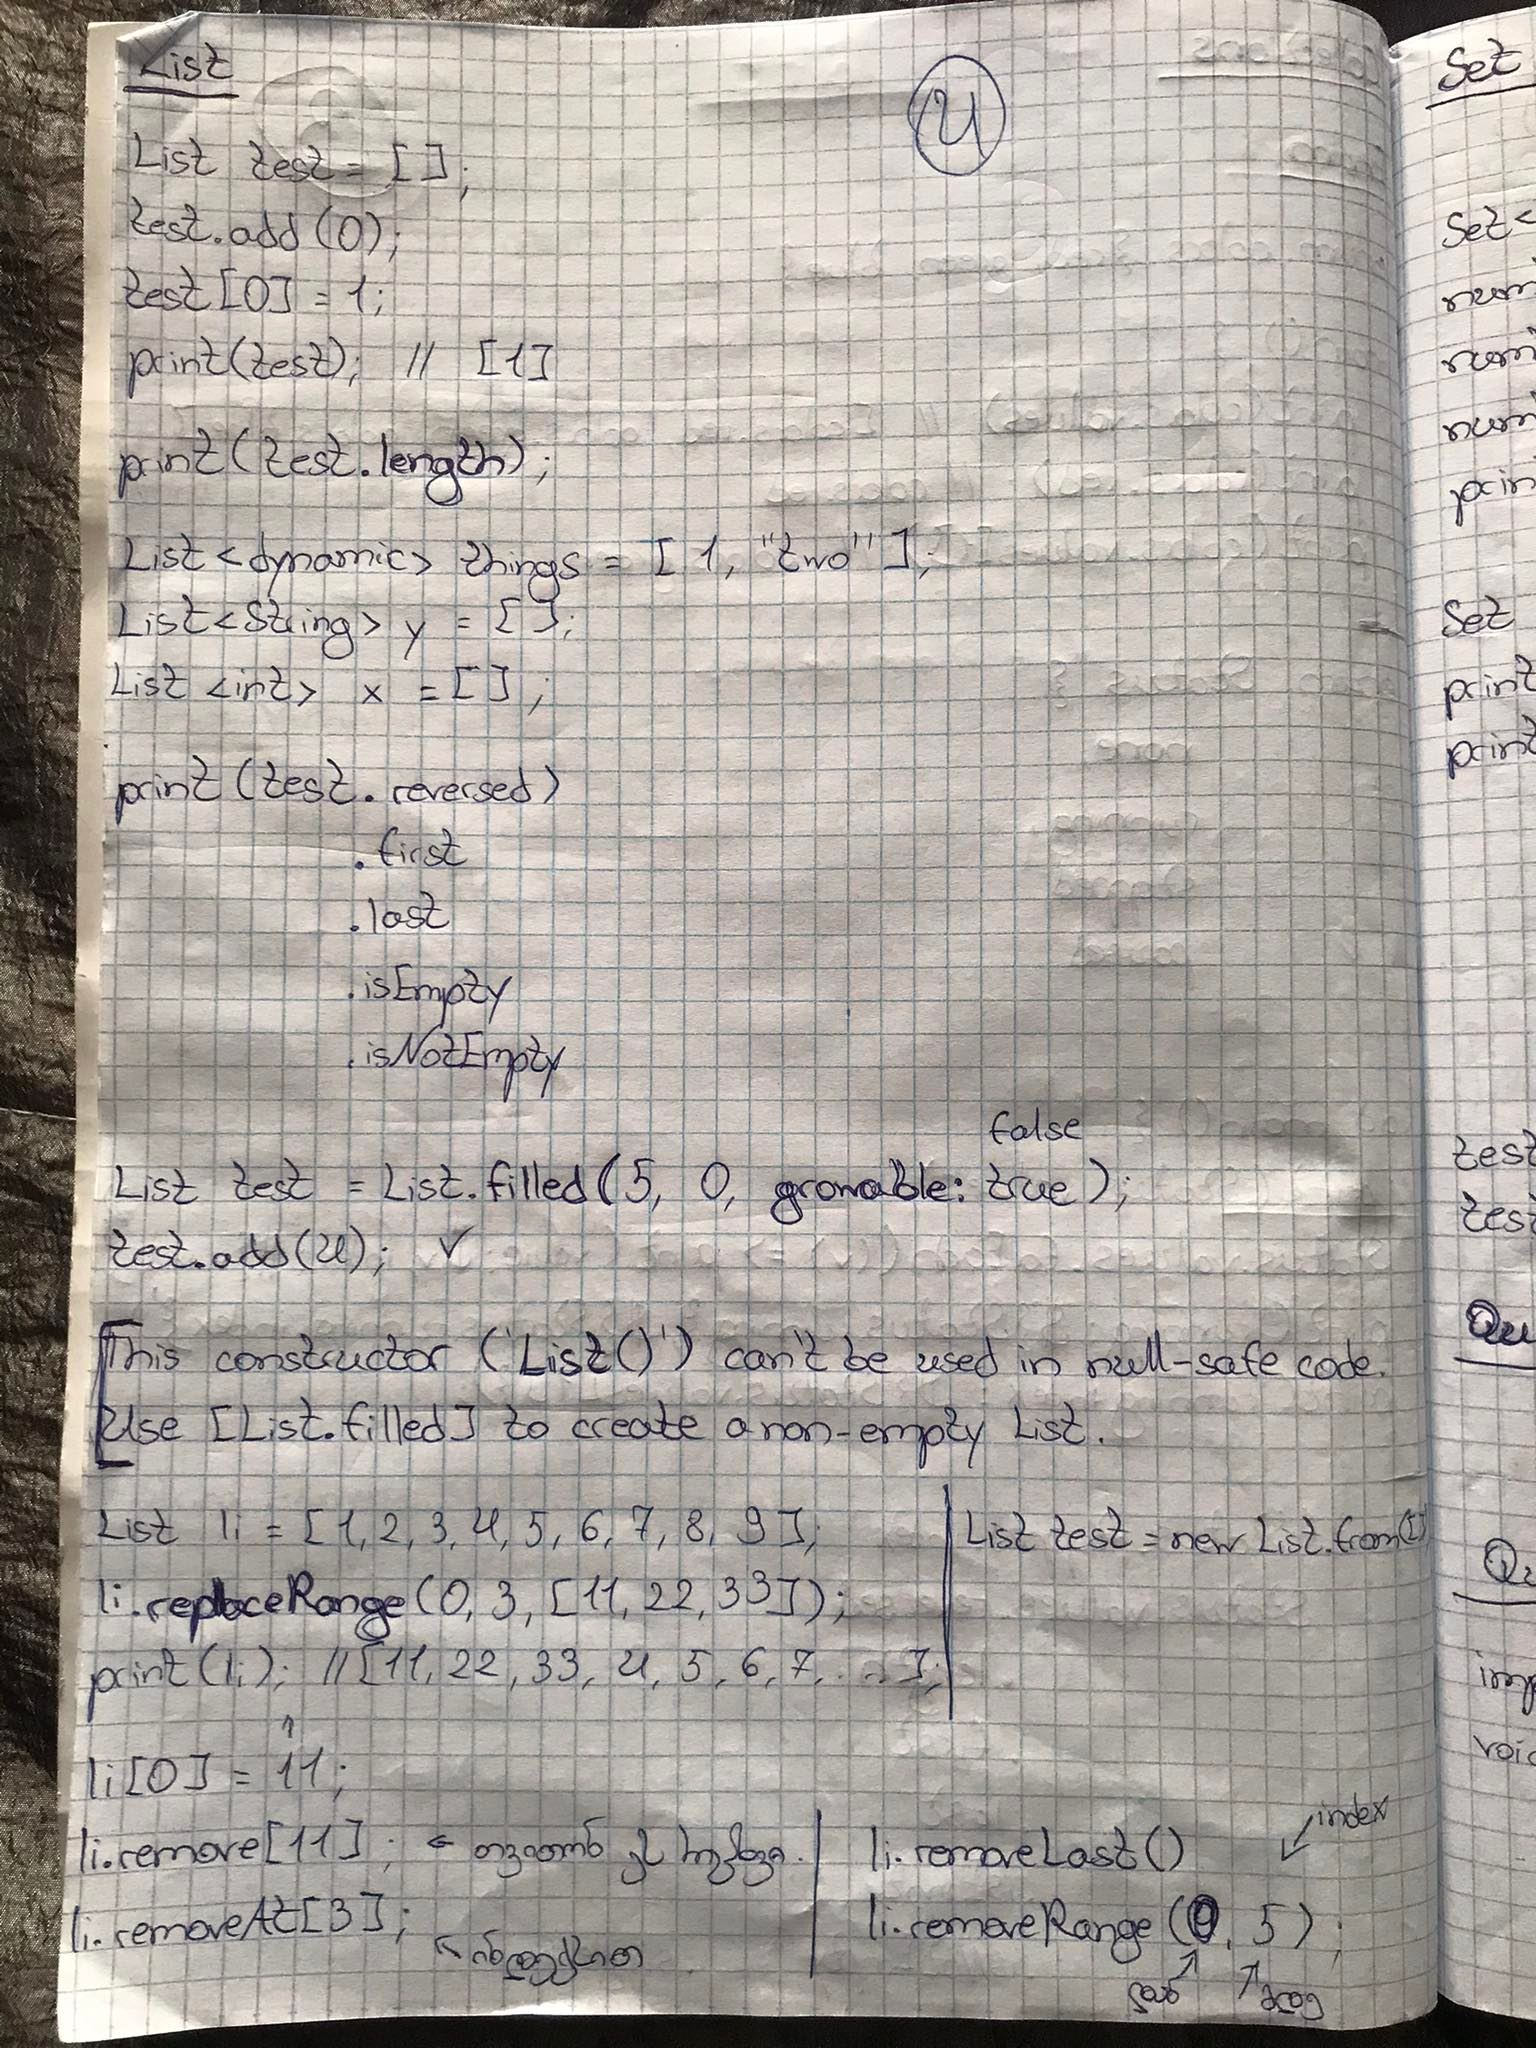 List
4
List test = [];
test.add(0);
test[0] = 1;
print(test); // [1]
print(test.length);
List<dynamic> things = [1, "two"];
List<String> y = [];
List <int> x = [];
print(test.reversed)
.first
.last
.isEmpty
.isNotEmpty
false
List test = List.filled(5, 0, growable: true);
test.add(4); ✓
This constructor ('List()') can't be used in null-safe code.
Use [List.filled] to create a non-empty List.
List li = [1, 2, 3, 4, 5, 6, 7, 8, 9];
li.replaceRange(0, 3, [11, 22, 33]);
print(li); // [11, 22, 33, 4, 5, 6, 7, ...];
List test = new List.from([]
li[0] = 11;
li.remove[11]; ←
li.removeAt[3]; ← ინდექსით
li.removeLast()
index
li.removeRange(0, 5);
Set
Set<
num
num
num
prin
Set
print
print
test
test
Qu
Qu
imp
void